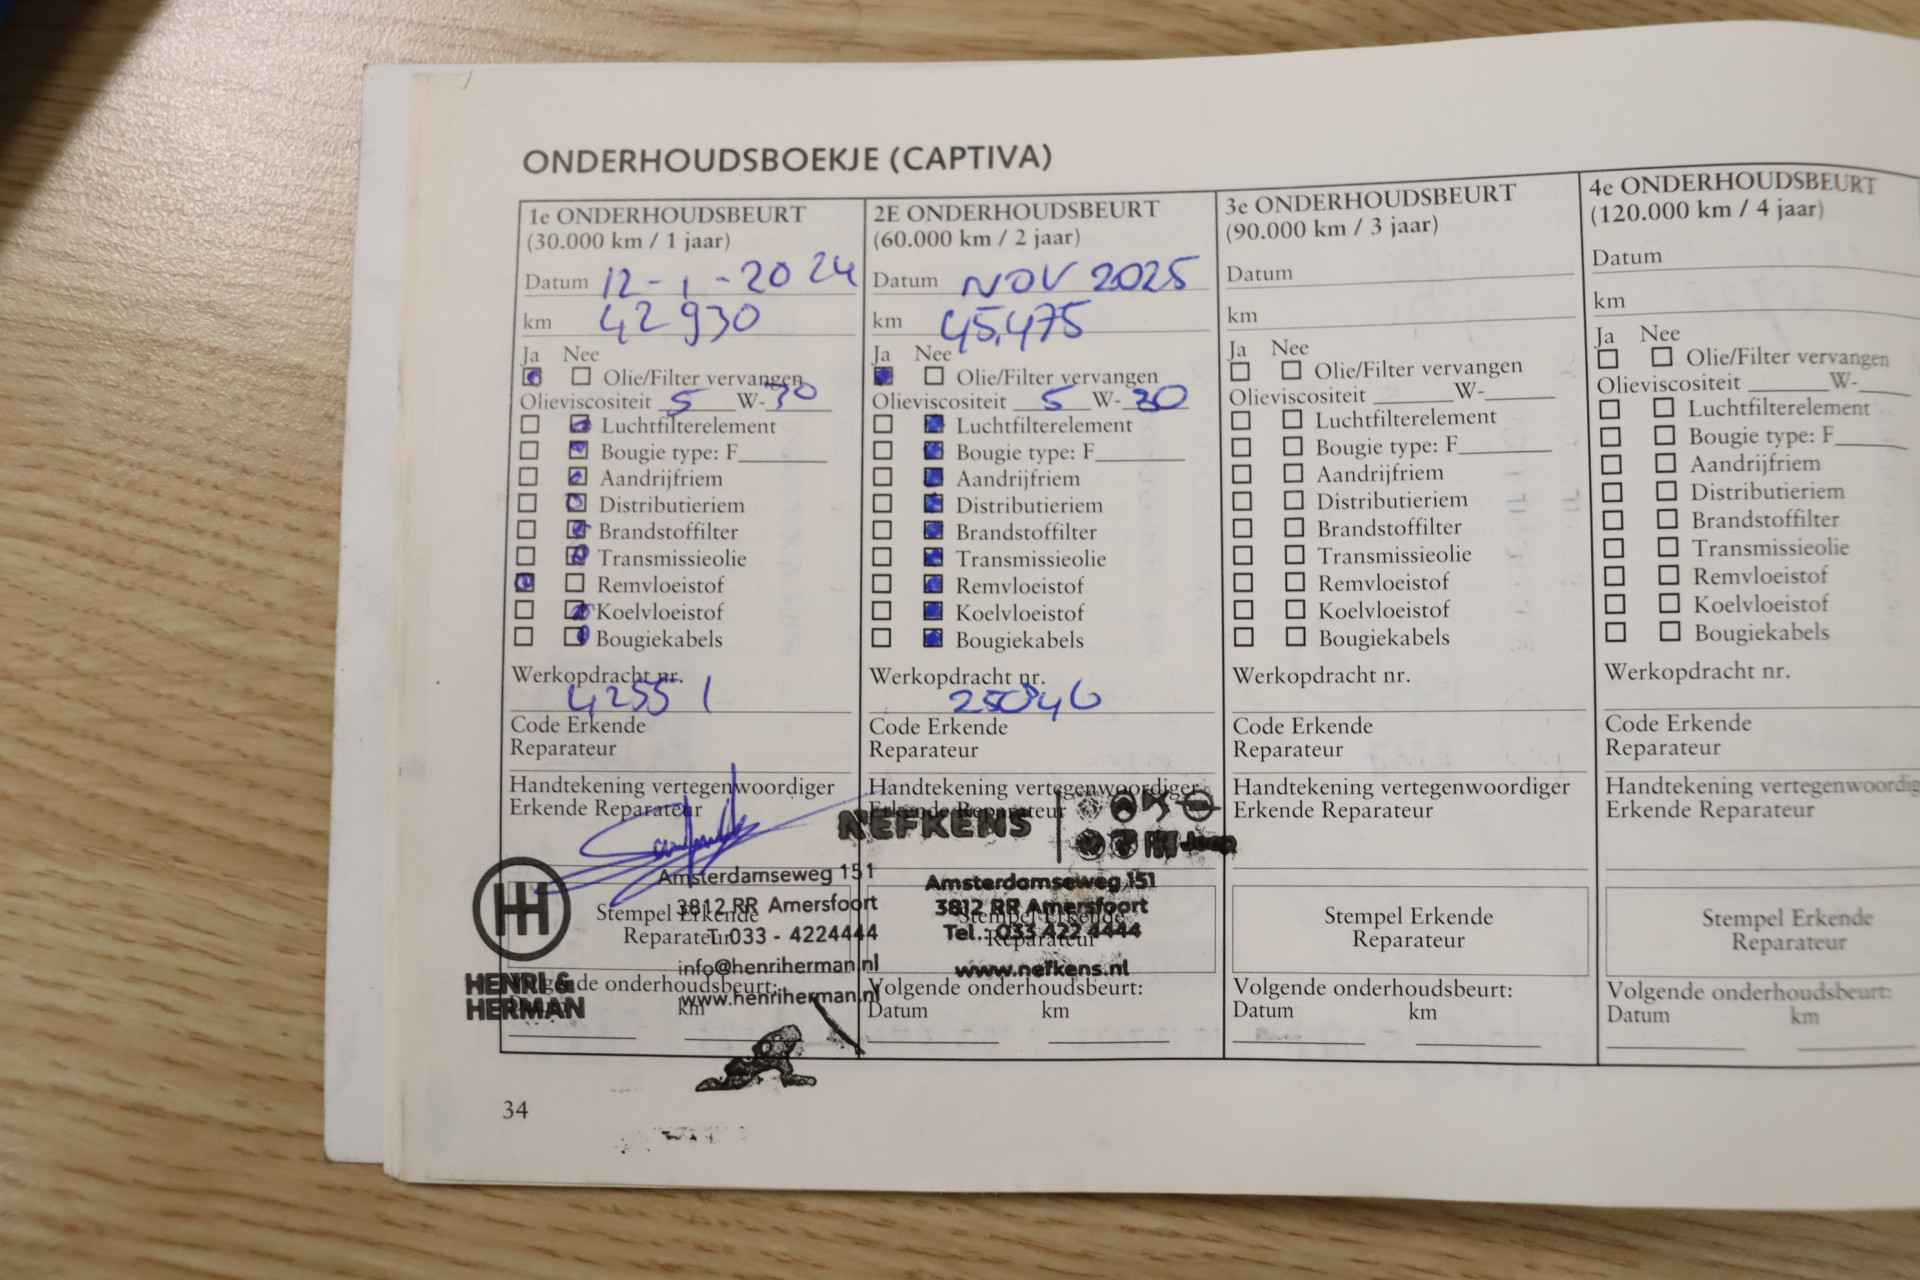 ONDERHOUDSBOEKJE (CAPTIVA)
1e ONDERHOUDSBEURT
(30.000 km / 1 jaar)
Datum 12-1-2024
km 42930
Ja Nee
Olie/Filter vervangen
Olieviscositeit 5 W-30
Luchtfilterelement
Bougie type: F
Aandrijfriem
Distributieriem
Brandstoffilter
Transmissieolie
Remvloeistof
Koelvloeistof
Bougiekabels
Werkopdracht nr.
42551
Code Erkende
Reparateur
Handtekening vertegenwoordiger
Erkende Reparateur
Stempel Erkende
Reparateur
HENRI &
HERMAN
Amsterdamseweg 151
3812 RR Amersfoort
T. 033 - 4224444
info@henriherman.nl
www.henriherman.nl
Volgende onderhoudsbeurt:
km
2E ONDERHOUDSBEURT
(60.000 km / 2 jaar)
Datum NOV 2025
km 45.475
Ja Nee
Olie/Filter vervangen
Olieviscositeit 5 W-30
Luchtfilterelement
Bougie type: F
Aandrijfriem
Distributieriem
Brandstoffilter
Transmissieolie
Remvloeistof
Koelvloeistof
Bougiekabels
Werkopdracht nr.
Code Erkende
Reparateur
Handtekening vertegenwoordiger
Erkende Reparateur
NEFKENS
Jeep
Amsterdamseweg 151
3812 RR Amersfoort
Tel.: 033 422 4444
www.nefkens.nl
Stempel Erkende
Reparateur
Volgende onderhoudsbeurt:
Datum km
3e ONDERHOUDSBEURT
(90.000 km / 3 jaar)
Datum
km
Ja Nee
Olie/Filter vervangen
Olieviscositeit W-
Luchtfilterelement
Bougie type: F
Aandrijfriem
Distributieriem
Brandstoffilter
Transmissieolie
Remvloeistof
Koelvloeistof
Bougiekabels
Werkopdracht nr.
Code Erkende
Reparateur
Handtekening vertegenwoordiger
Erkende Reparateur
Stempel Erkende
Reparateur
Volgende onderhoudsbeurt:
Datum km
4e ONDERHOUDSBEURT
(120.000 km / 4 jaar)
Datum
km
Ja Nee
Olie/Filter vervangen
Olieviscositeit W-
Luchtfilterelement
Bougie type: F
Aandrijfriem
Distributieriem
Brandstoffilter
Transmissieolie
Remvloeistof
Koelvloeistof
Bougiekabels
Werkopdracht nr.
Code Erkende
Reparateur
Handtekening vertegenwoordig
Erkende Reparateur
Stempel Erkende
Reparateur
Volgende onderhoudsbeurt:
Datum km
34